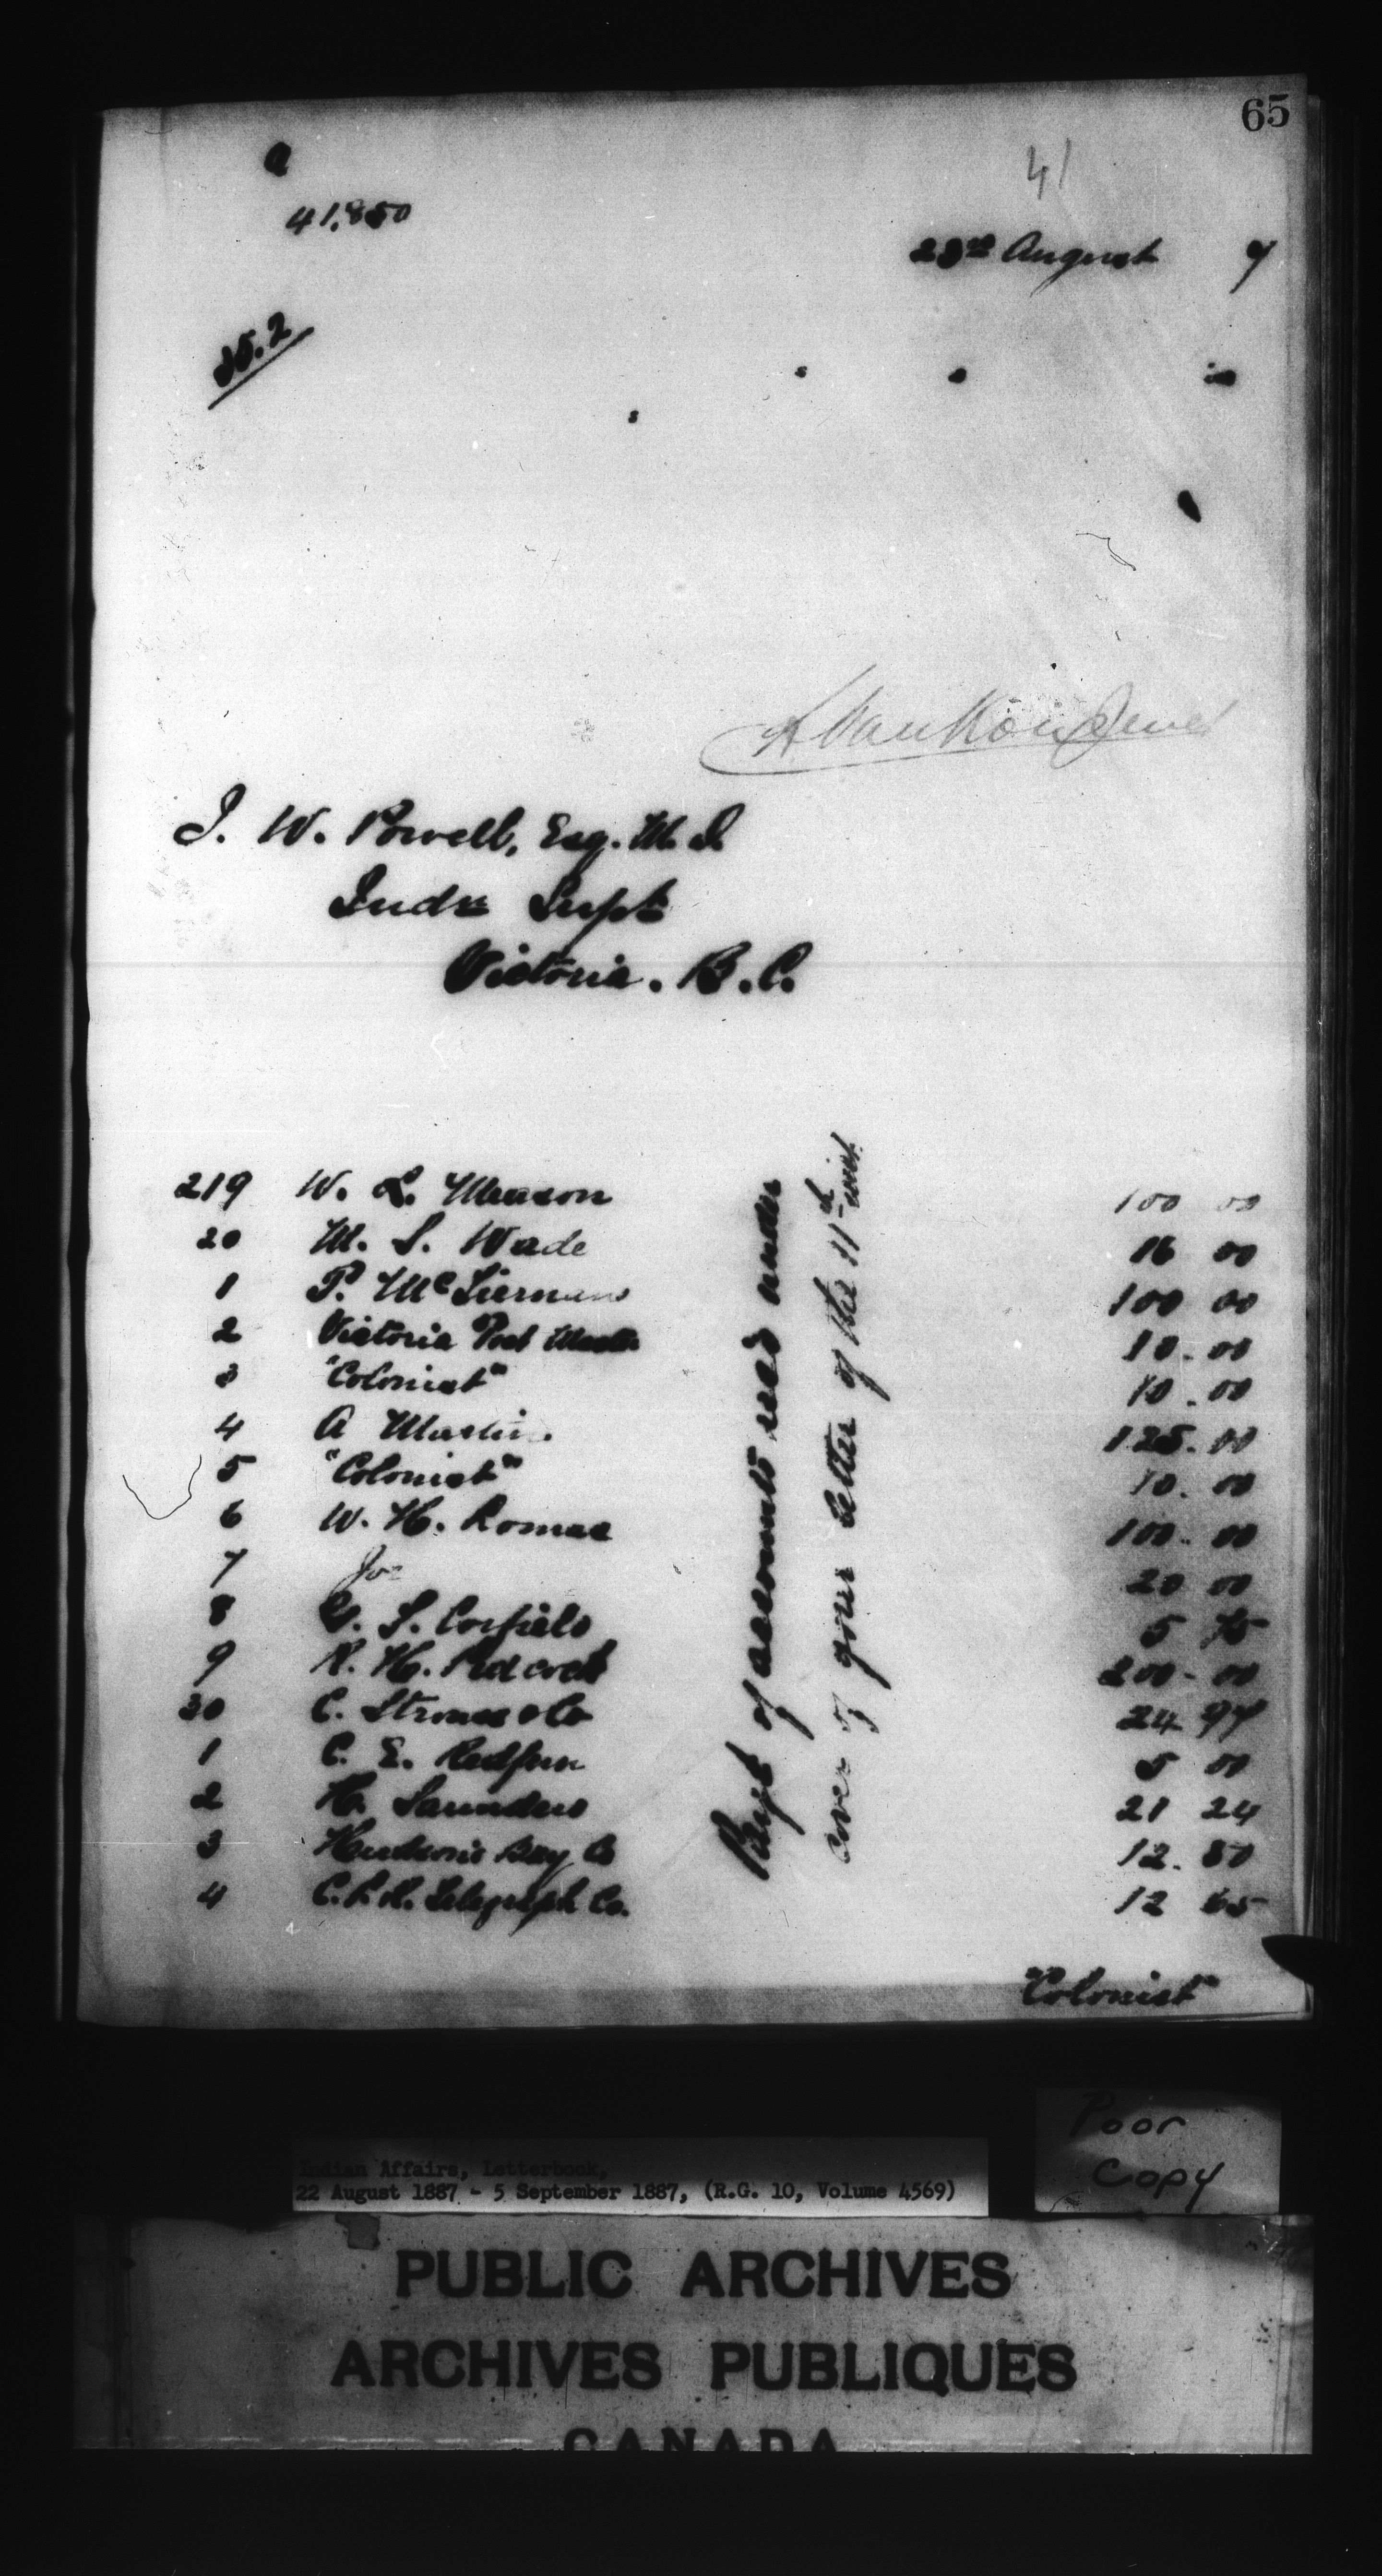 65
41
41,850
23rd August 7
35.2
L. VanKoughnet
I. W. Powell, Esq. M.D.
Indn Supt
Victoria. B.C.
219 W. L. Meason 100 00
20 M. S. Wade 16 00
1 P. McTiernan 100 00
2 Victoria Post Master 10.00
3 "Colonist" 10.00
4 A Martin 125.00
5 "Colonist" 10.00
6 W. H. Lomas 100.00
7 Do 20 00
8 G. S. Corfield 5 75
9 R. H. Pidcock 200-00
30 C. Strouss & Co 24 97
1 C. E. Redfern 5 00
2 H. Saunders 21 24
3 Hudson's Bay Co 12.80
4 C.P.R. Telegraph Co. 12 65
Payt of accounts rec'd under
cover of your letter of the 11th inst.
"Colonist"
Poor
Copy
Indian Affairs, Letterbook,
22 August 1887 - 5 September 1887, (R.G. 10, Volume 4569)
PUBLIC ARCHIVES
ARCHIVES PUBLIQUES
CANADA